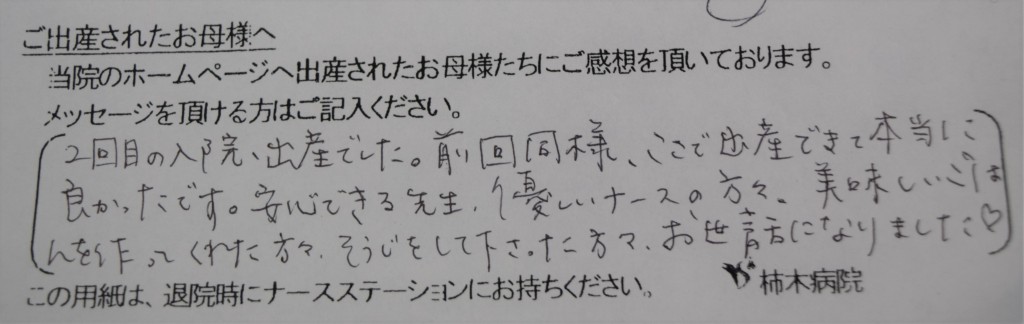 ご出産されたお母様へ
当院のホームページへ出産されたお母様たちにご感想を頂いております。
メッセージを頂ける方はご記入ください。
2回目の入院、出産でした。前回同様、ここで出産できて本当に
良かったです。安心できる先生、優しいナースの方々、美味しいごは
んを作ってくれた方々、そうじをして下さった方々、お世話になりました♡
この用紙は、退院時にナースステーションにお持ちください。 柿木病院